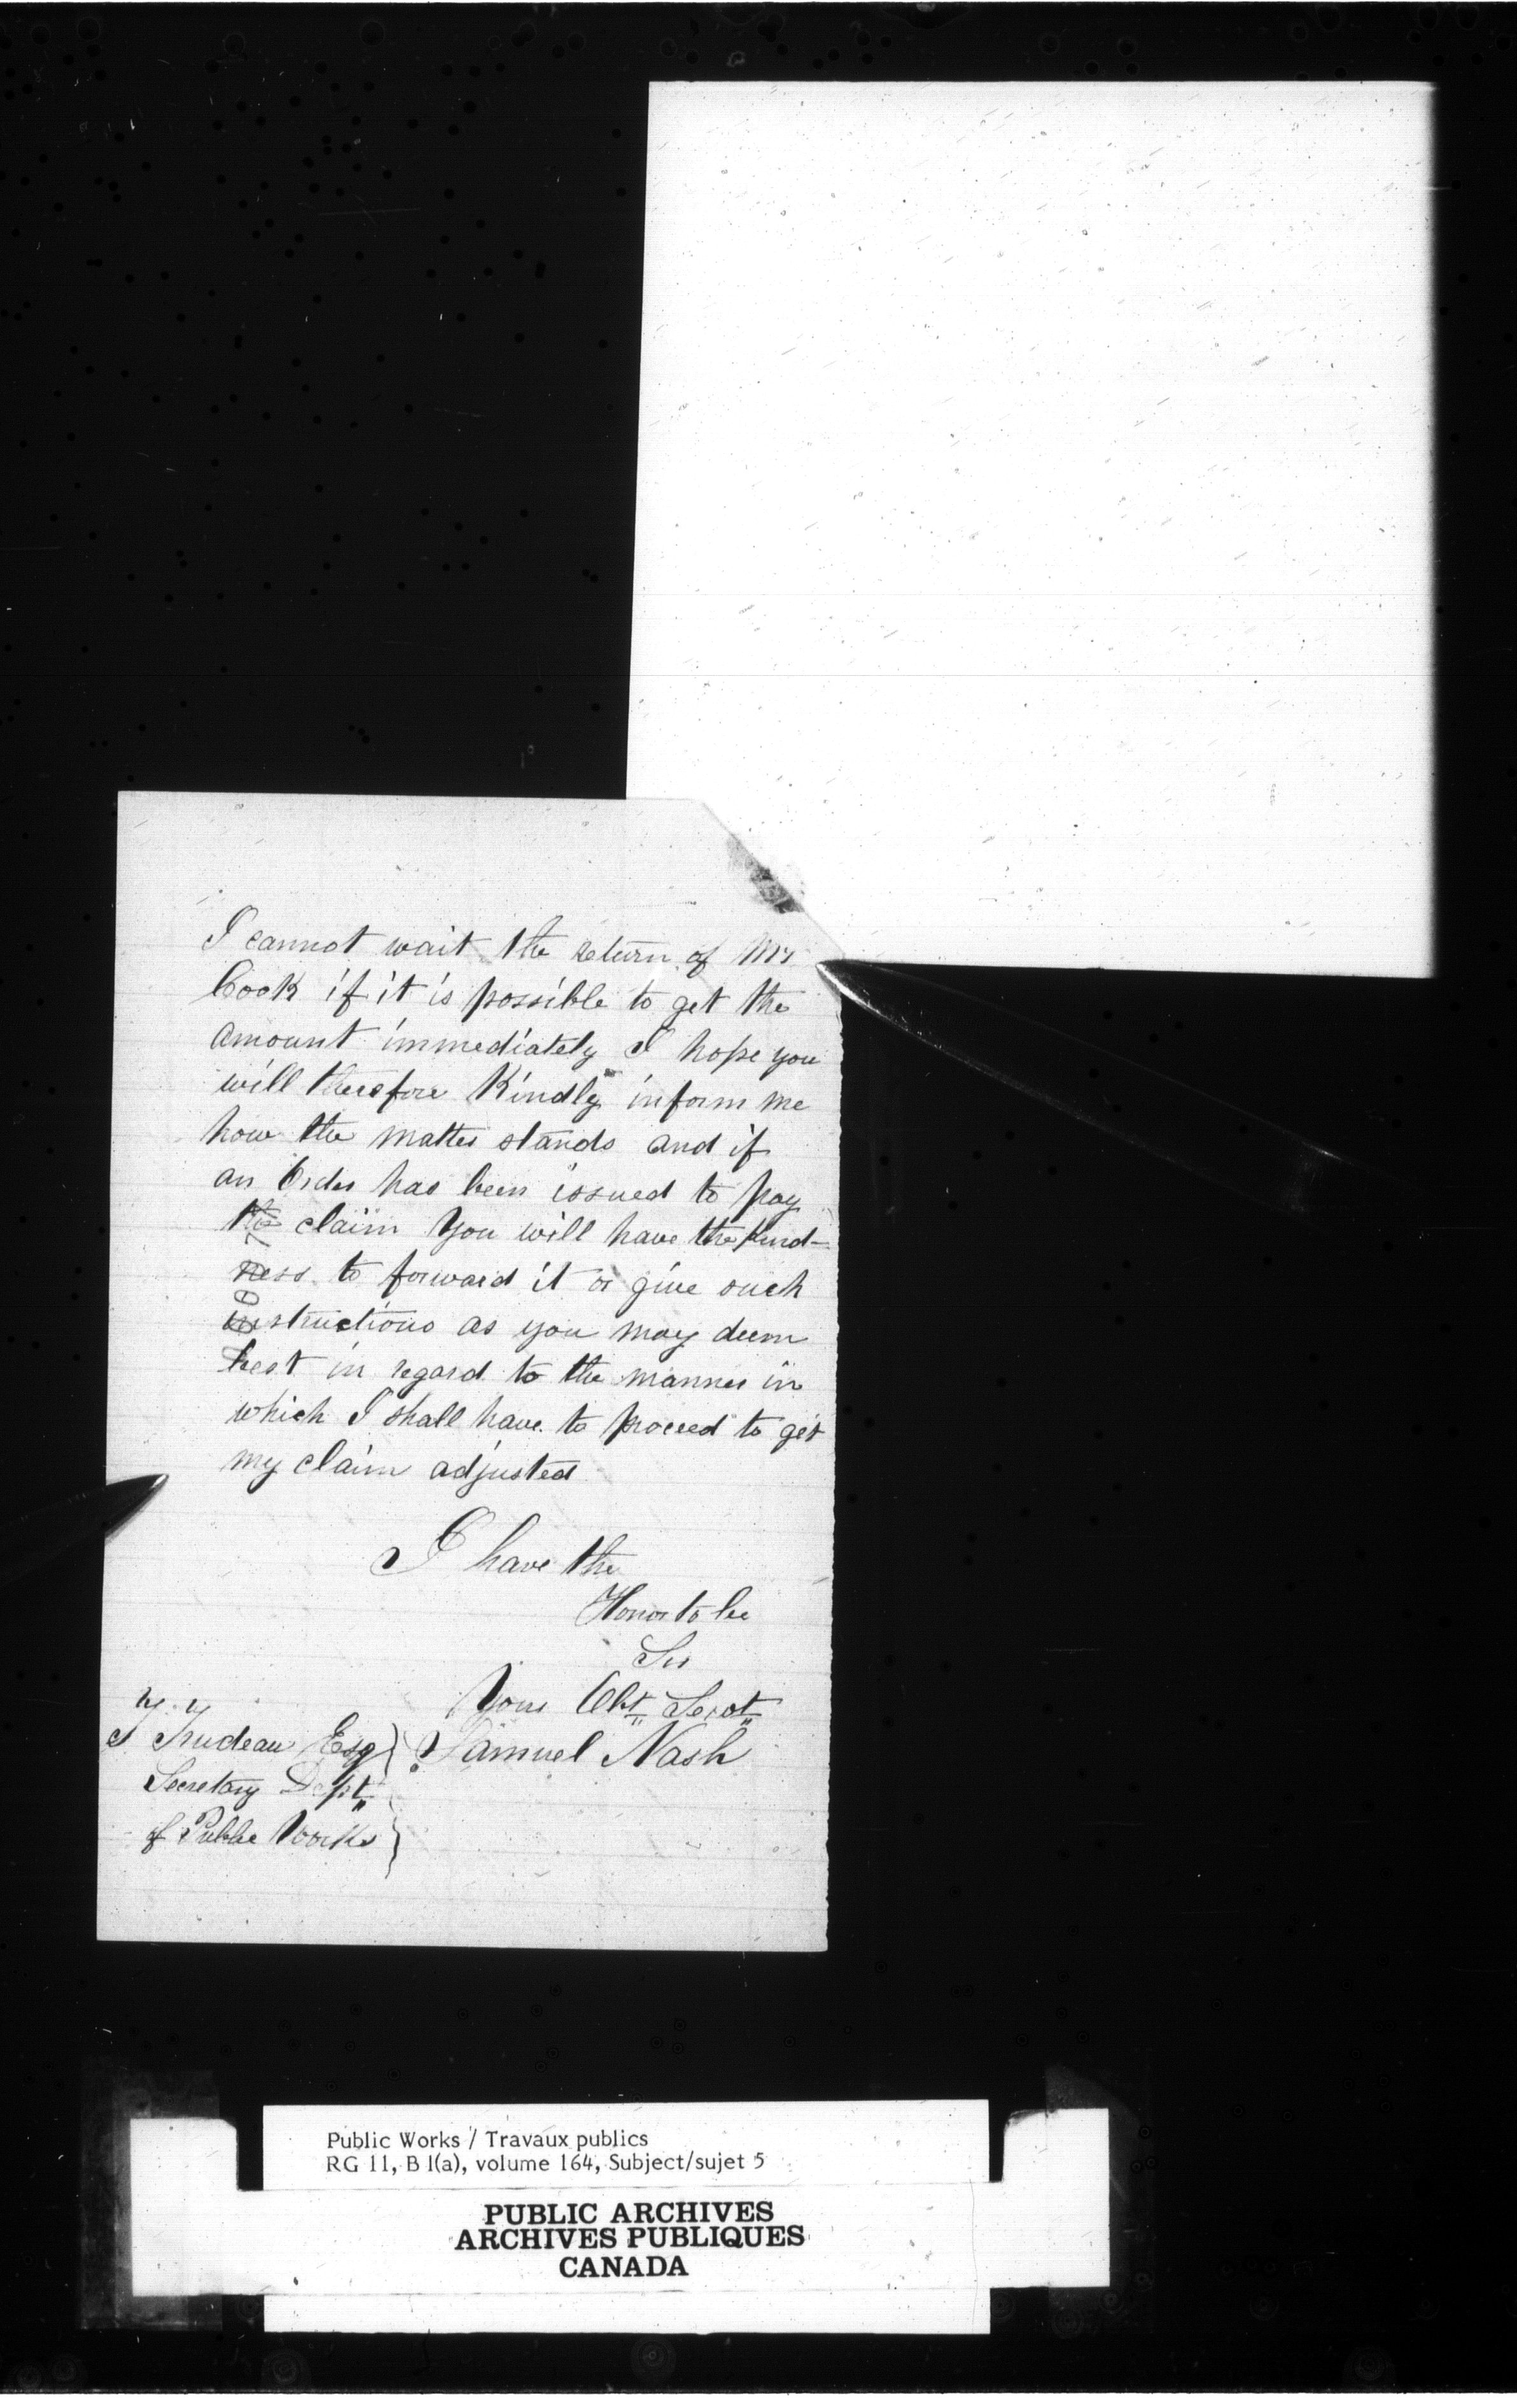 I cannot wait the return of Mr
Cook if it is possible to get the
amount immediately I hope you
will therefore Kindly inform me
how the matter stands and if
an Order has been issued to pay
the claim You will have the Kind-
ness to forward it or give such
instructions as you may deem
best in regard to the manner in
which I shall have to proceed to get
my claim adjusted
I have the
Honor to be
Sir
Your Obt Servt
Samuel Nash
Trudeau Esq
Secretary Dept
of Public Works
Public Works / Travaux publics
RG 11, B 1(a), volume 164, Subject/sujet 5
PUBLIC ARCHIVES
ARCHIVES PUBLIQUES
CANADA